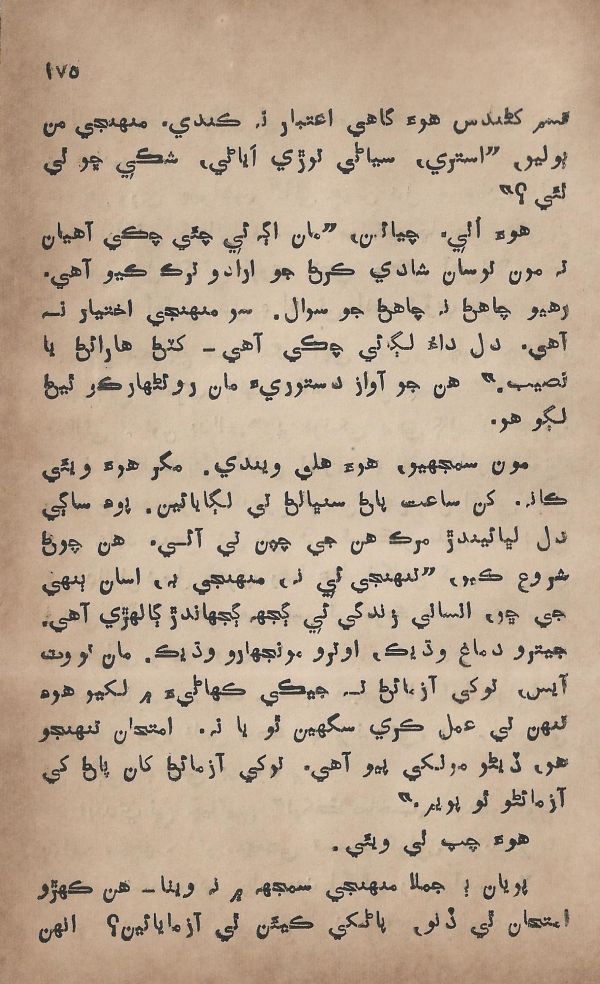 ١٧٥
قسم کڻندس هوءَ ڪاهي اعتبار نہ ڪندي. منهنجي من
ٻوليو، ”استري، سياڻي توڙي اَياڻي، شڪي ڇو ٿي
ٿئي؟“
هوءَ اُٿي. چيائين، ”مان اڳ ئي چئي چڪي آهيان
تہ مون توسان شادي ڪرڻ جو ارادو ترڪ ڪيو آهي.
رهيو چاهڻ نہ چاهڻ جو سوال. سو منهنجي اختيار نہ
آهي. دل داءُ لڳائي چڪي آهي_ کٽڻ هارائڻ يا
نصيب.“ هن جو آواز دستوريءَ مان روئڻهارڪو ٿيڻ
لڳو هو.
مون سمجهيو، هوءَ هلي ويندي. مگر هوءَ ويئي
ڪانہ. کن ساعت پاڻ سنڀالڻ تي لڳايائين. پوءِ ساڳي
دل لڀائيندڙ مرڪ هن جي چپن تي آئي. هن چوڻ
شروع ڪيو، ”تنهنجي ئي نہ، منهنجي بہ، اسان ٻنهي
جي ڇو، انساني زندگي ئي ڳجهہ ڳجهاندڙ ڳالهڙي آهي.
جيترو دماغ وڌيڪ، اوترو مونجهارو وڌيڪ. مان تو وٽ
آيس، توکي آزمائڻ تہ جيڪي ڪهاڻيءَ ۾ لکيو هوءِ
تنهن تي عمل ڪري سگهين ٿو يا نہ. امتحان تنهنجو
هو، ڏيڻو مونکي پيو آهي. توکي آزمائڻ کان پاڻ کي
آزمائڻو ٿو پوير.“
هوءَ چپ ٿي ويئي.
پويان ٻہ جملا منهنجي سمجهہ ۾ نہ ويٺا_ هن ڪهڙو
امتحان ٿي ڏنو، پاڻکي ڪيئن ٿي آزمايائين؟ انهن